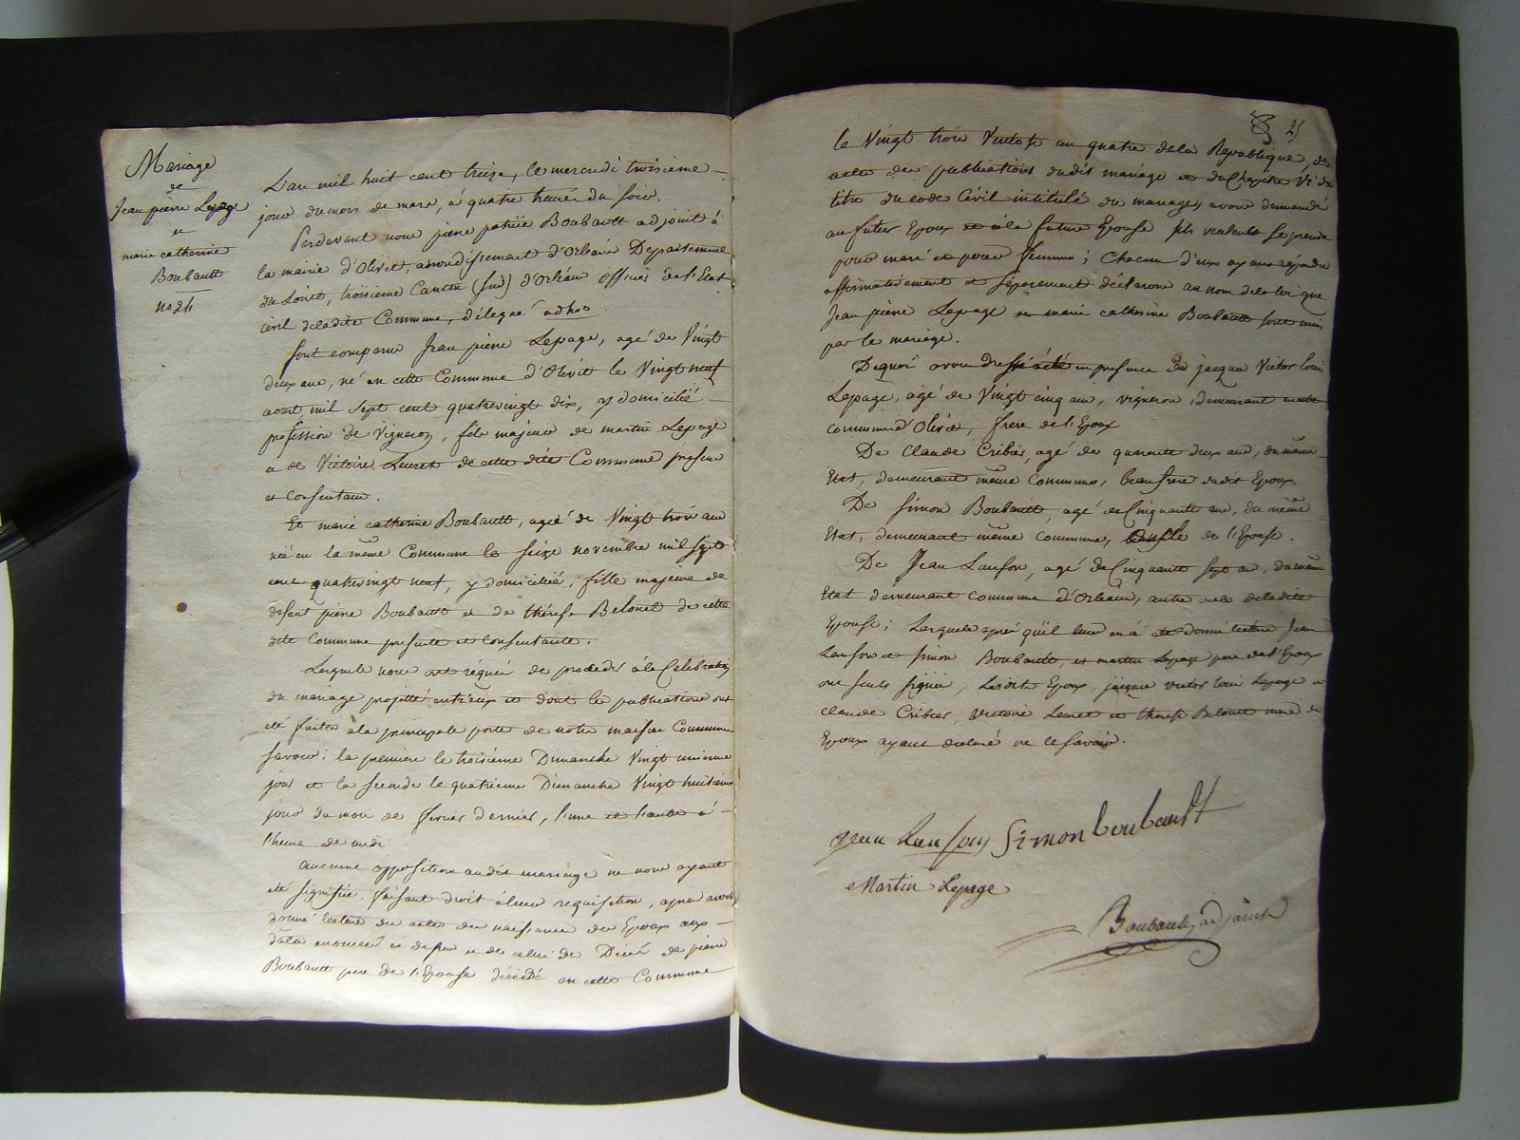 Mariage
de
Jean pierre Lepage
et
marie catherine
Boubault
no 24
L'an mil huit cent treize, le mercredi troisieme
jour du mois de mars, à quatre heures du soir.
Pardevant nous pierre patrice Boubault adjoint à
la mairie d'Olivet, arrondissement d'Orléans Departement
du Loiret, troisieme Canton (sud) d'Orléans officier de l'Etat
civil deladite Commune, délégué ad hoc
Sont comparus Jean pierre Lepage, agé de Vingt
deux ans, né en cette Commune d'Olivet le Vingt neuf
aout mil sept cent quatrevingt dix, y domicilié
profession de Vigneron, fils majeur de martin Lepage
et de Victoire de cette dite Commune present
et consentans.
Et marie catherine Boubault, agée de Vingt trois ans
née en la même Commune le seize novembre mil sept
cent quatrevingt neuf, y domiciliée, fille majeure de
defunt pierre Boubault et de thérese Belouet de cette
dite Commune presente et consentante.
Lesquels nous ont réquis de proceder à la Celebration
du mariage projetté entr'eux et dont les publications ont
été faites à la principale porte de notre maison Commune
savoir: la premiere le troisième Dimanche Vingt unieme
jour et la seconde le quatrieme Dimanche Vingt huitieme
jour du mois de fevrier dernier, l'une et l'autre à
l'heure de midi
Aucunne opposition audit mariage ne nous ayant
été signifiée. faisant droit à leur requisition, apres avoir
donné lecture des actes de naissance des Epoux
enoncés et de celui de Décès de pierre
Boubault pere de l'Epouse décédé en cette Commune
25
le Vingt trois an quatre dela Republique, des
actes des publications dudit mariage et du Chapitre VI du
titre du code Civil intitulé du mariage, avons demandé
au futur Epoux et à la future Epouse s'ils veulent se prendre
pour mari et pour femme; Chacun d'eux ayant repondu
affirmativement et separement déclarons au nom dela loi que
Jean pierre Lepage et marie catherine Boubault sont unis
par le mariage.
Dequoi avons dressé acte en presence De jacques Victor louis
Lepage, agé de Vingt cinq ans, vigneron, demeurant
commune d'Olivet, frere de l'Epoux
De Claude Cribier, agé de quarante deux ans, du même
Etat, demeurant même Commune, beaufrere dudit Epoux.
De Simon Boubault, agé de Cinquante ans, du même
Etat, demeurant même Commune, de l'Epouse.
De Jean Lanson, agé de Cinquante sept ans, du même
Etat demeurant commune d'Orleans, autre dela dite
Epouse; Lesquels après qu'il leur en a été donné lecture Jean
Lanson et Simon Boubault, et martin Lepage pere de l'Epoux
ont seuls signé, Ledit Epoux, jacques victor louis Lepage et
claude Cribier, victoire et therese Belouet meres des
Epoux ayant declaré ne le savoir.
Jean Lanson Simon boubault
Martin Lepage
Boubault, adjoint